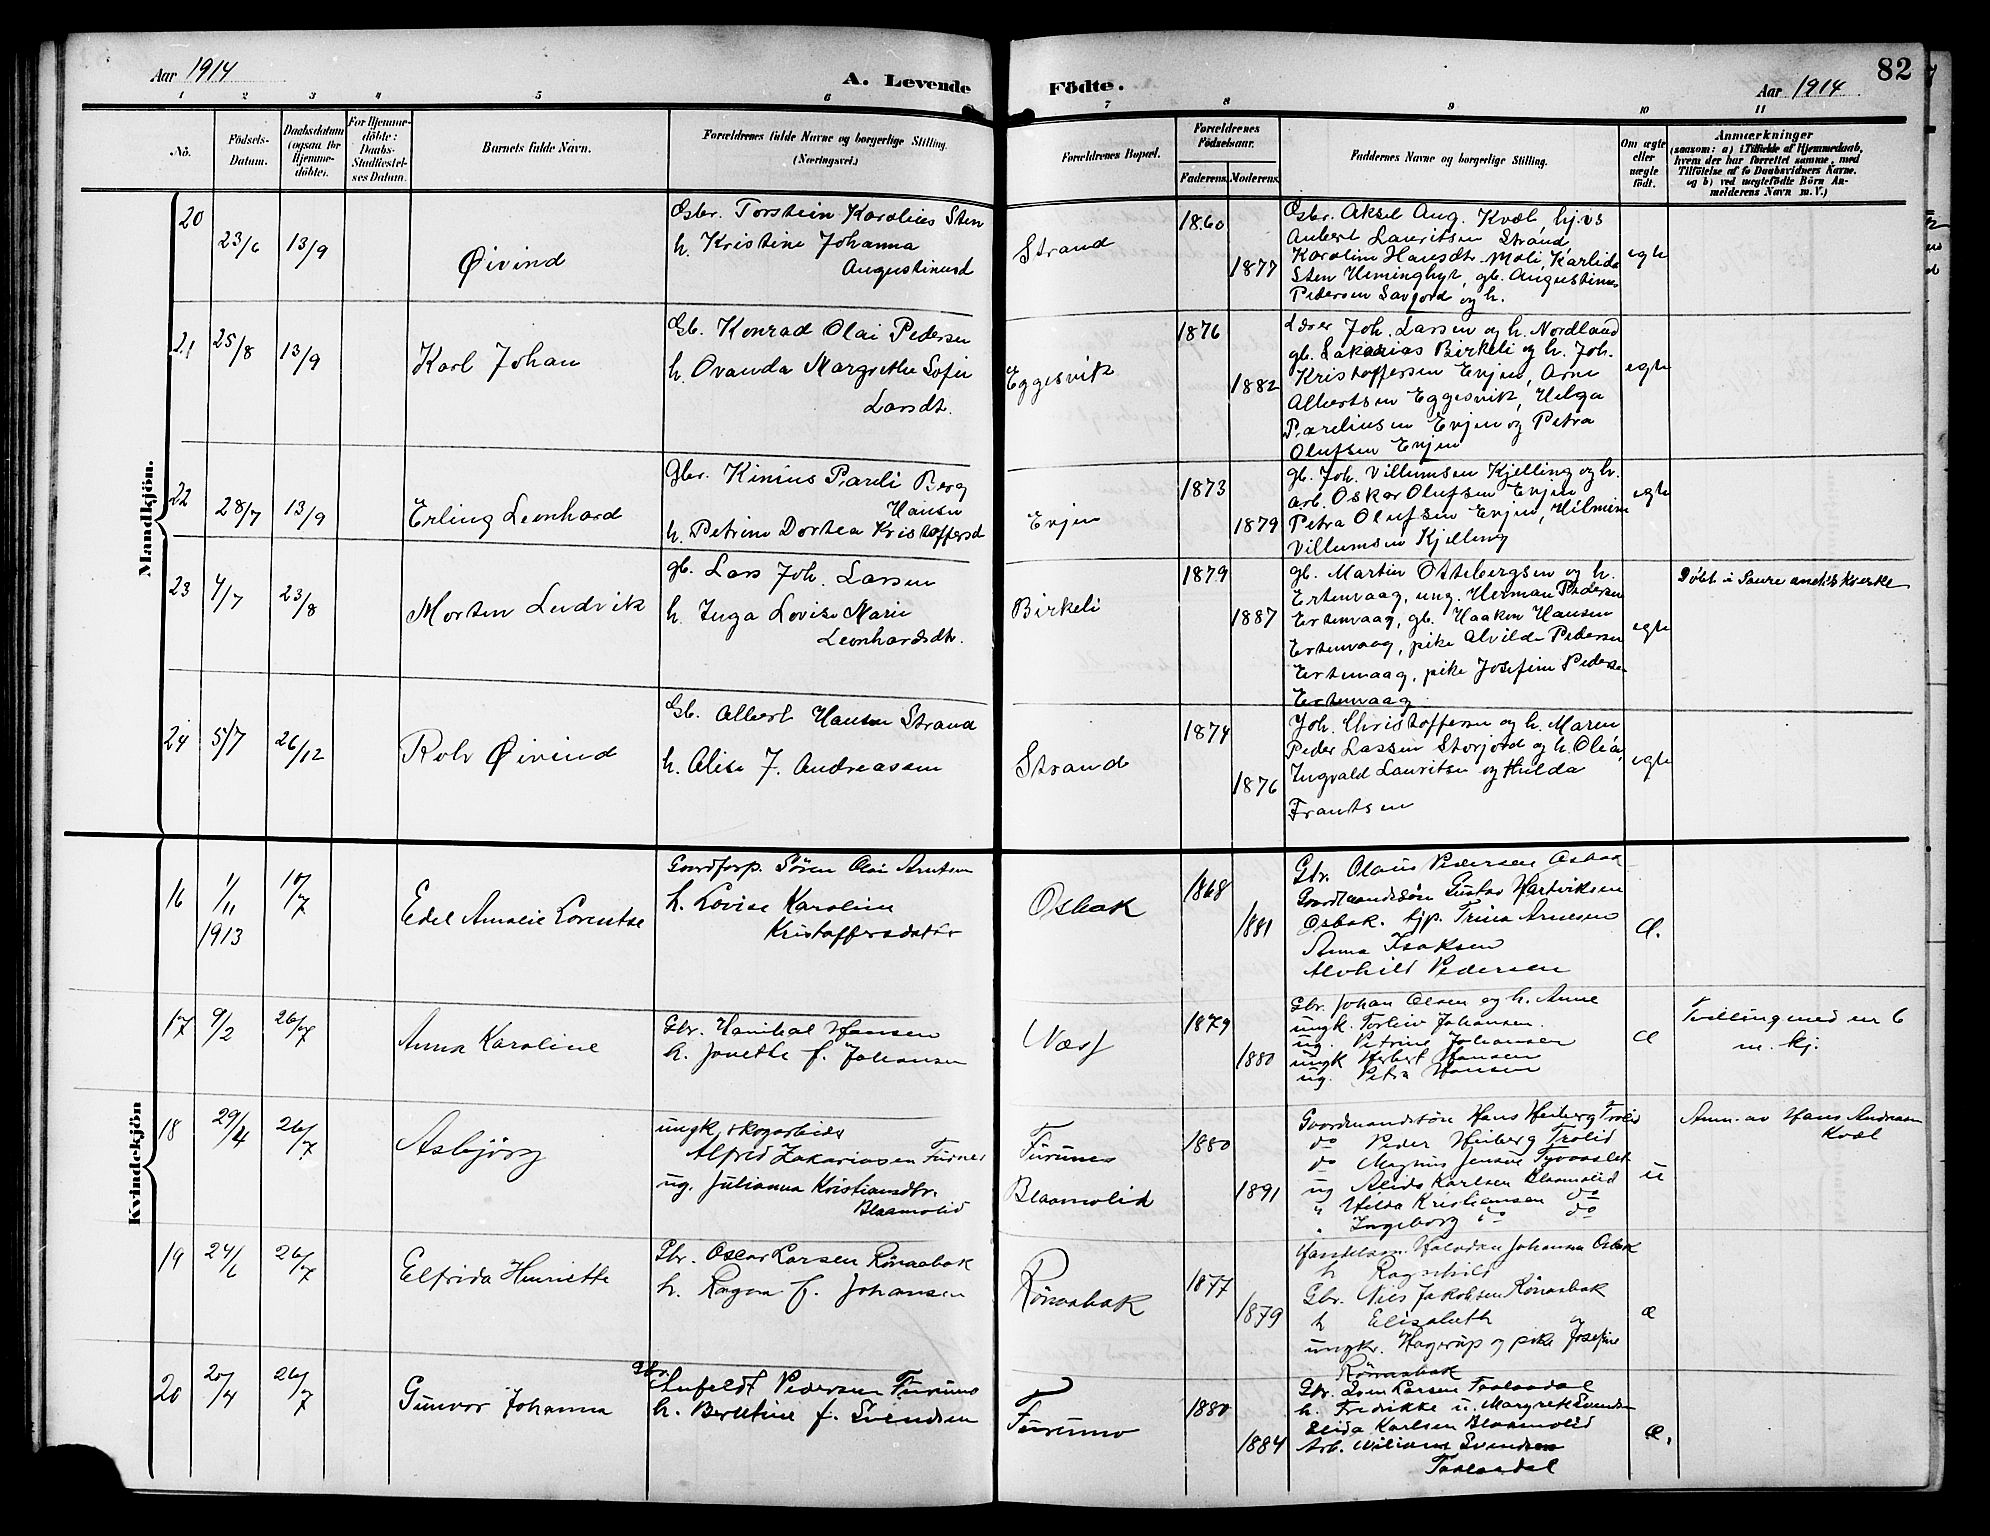 Aar 1914
A. Levende
Födte.
Aar 1914
82
1 2 3 4 5 6 7 8 9 10 11
No.
Födsels-
Datum.
Daabsdatum
(ogsaa for
Hjemme-
döbte).
For Hjemme-
döbte:
Daabs-
Stadfæstel-
ses Datum.
Barnets fulde Navn.
Forældrenes fulde Navne og borgerlige Stilling.
(Næringsvei.)
Forældrenes Bopæl.
Forældrenes
Födselsaar.
Faderens. Moderens.
Faddernes Navne og borgerlige Stilling.
Om ægte
eller
uægte
födt.
Anmærkninger
(saasom: a) i Tilfælde af Hjemmedaab,
hvem der har forrettet samme, med
Tilföielse af to Daabsvidners Navne.
og b) ved uægtefödte Börn An-
melderens Navn m. V.)
Mandkjön.
20
23/6
13/9
Øivind
Gbr. Torstein Karolius Sten
h. Kristine Johanna
Augustinusd
Strand
1860
1877
Gbr. Aksel Aug. Kvæl, hjvs
Anbert Lauritsen Strand
Karoline Hansdtr. Moli, Karlida
Sten Heminghyt, gb. Augustinus
Pedersen Savjord og h.
egte
21
25/8
13/9
Karl Johan
Gb. Konrad Olai Pedersen
h. Ovanda Margrethe Sofie
Larsdt.
Eggesvik
1876
1882
Lærer Joh. Larsen og h. Nordland
gb. Sakarias Birkeli og h. Joh.
Kristoffersen Evjen, Arne
Albertsen Eggesvik, Helga
Pareliusen Evjen og Petra
Olufsen Evjen
egte
22
28/7
13/9
Erling Leonhard
Gbr. Kinius Pareli Berg
Hansen
h. Petrine Dortea Kristoffersd
Evjen
1873
1879
gb. Joh. Villumsen Kjelling og h.
arb. Oskar Olufsen Evjen
Petra Olufsen Evjen, Hilmine
Villumsen Kjelling
egte
23
4/7
23/8
Morten Ludvik
gb. Lars Joh. Larsen
h. Inga Lovise Marie
Leonhardsdtr.
Birkeli
1879
1887
gb. Martin Ottebergsen og h.
Ertenvaag, ung. Herman Pedersen
Ertenvaag, gb. Haakon Hansen
Ertenvaag, pike Alvilde Pedersen
Ertenvaag, pike Josefine Pedersen
Ertenvaag
egte
Døbt i Saure kirke
24
5/7
26/12
Rolv Øivind
Gb. Albert Hansen Strand
h. Alise J. Andreassen
Strand
1874
1876
Joh. Christoffersen og h. Maren
Peder Lassen Storjord og h. Olea,
Ingvald Lauritsen og Hulda
Frantsen
egte
Kvindekjön
16
1/11
1913
10/7
Edel Amalie Lorentse
Gaardforp. Sören Olai Arntsen
h. Lovise Karoline
Kristoffersdatter
Osbak
1868
1881
Gbr. Olaus Pedersen Osbak
Gaardmandssön Gustav Hartviksen
Osbak. hjp. Trina Arnesen
Anna Isaksen
Alvhild Pedersen
Æ.
17
9/2
26/7
Anna Karoline
Gbr. Hanibal Hansen
h. Janette f. Johansen
Værf
1879
1880
Gbr. Johan Olsen og h. Anne
ungk. Torleiv Johansen.
ug. Petrine Johansen
ungk Herbert Hansen
ug. Petra Hansen
Æ
Tvilling med nr 6
m. kj.
18
29/4
26/7
Asbjörg
ungk. skogarbeider
Alfred Zakariasen Furnes
ug. Julianna Kristiansdtr.
Blaamolid
Furunes
Blaamolid
1880
1891
Gaardmandssön Hans Heiberg Trolid
do Peder Heiberg Trolid
do Magnus Jensen
ug Alida Karlsen Blaamolid
" Hilda Kristiansen do
" Ingeborg do do
u
Anm. av Hans Andreasen
Kvæl
19
24/6
26/7
Elfrida Henriette
Gbr. Oscar Larsen Rönaabak
h. Ragna f. Johansen
Rönaabak
1877
1879
Handelsm. Halvdan Johansen Osbak
h Ragnhild
Gbr. Nils Jakobsen Rönaabak
h Elisabeth
ungkr. Hagerup og pike Josefine
Rönaabak
æ
20
20/4
26/7
Gunvor Johanna
Gbr. Anfeldt Pedersen Furumo
h. Berntine f. Svendsen
Furumo
1880
1884
Gbr. Sven Larsen Taalaadal
h. Fredrikke u. Margrete Svendsen
Elida Karlsen Blaamolid
Arb. William Svendsen
Taalaadal
Æ.